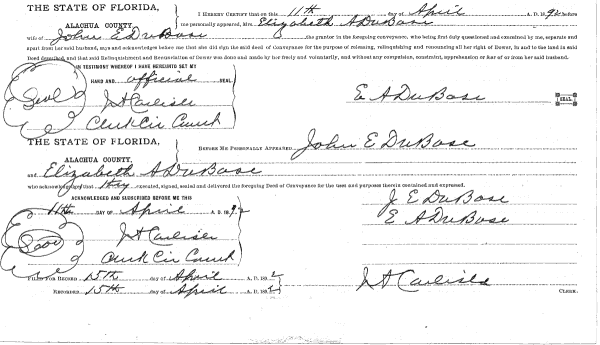 THE STATE OF FLORIDA,
ALACHUA COUNTY,
I HEREBY CERTIFY that on this 11th day of April A. D. 1892 before
me personally appeared, Mrs. Elizabeth A DuBose
wife of John E DuBose the grantor in the foregoing conveyance, who being first duly questioned and examined by me, separate and
apart from her said husband, says and acknowledges before me that she did sign the said deed of Conveyance for the purpose of releasing, relinquishing and renouncing all her right of Dower, in and to the land in said
Deed described, and that said Relinquishment and Renunciation of Dower was done and made by her freely and voluntarily, and without any compulsion, constraint, apprehension or fear of or from her said husband.
IN TESTIMONY WHEREOF I HAVE HEREUNTO SET MY
HAND AND official SEAL
Seal
J A Carlisle
Clerk Cir Court
E A DuBose SEAL
THE STATE OF FLORIDA,
ALACHUA COUNTY,
BEFORE ME PERSONALLY APPEARED John E DuBose
and Elizabeth A DuBose
who acknowledged that they executed, signed, sealed and delivered the foregoing Deed of Conveyance for the uses and purposes therein contained and expressed.
ACKNOWLEDGED AND SUBSCRIBED BEFORE ME THIS
11th DAY OF April A. D. 1892
Seal
J A Carlisle
Clerk Cir Court
J E DuBose
E A DuBose
FILED FOR RECORD 15th day of April A. D. 1892
RECORDED 15th day of April A. D. 1892
J A Carlisle
CLERK.